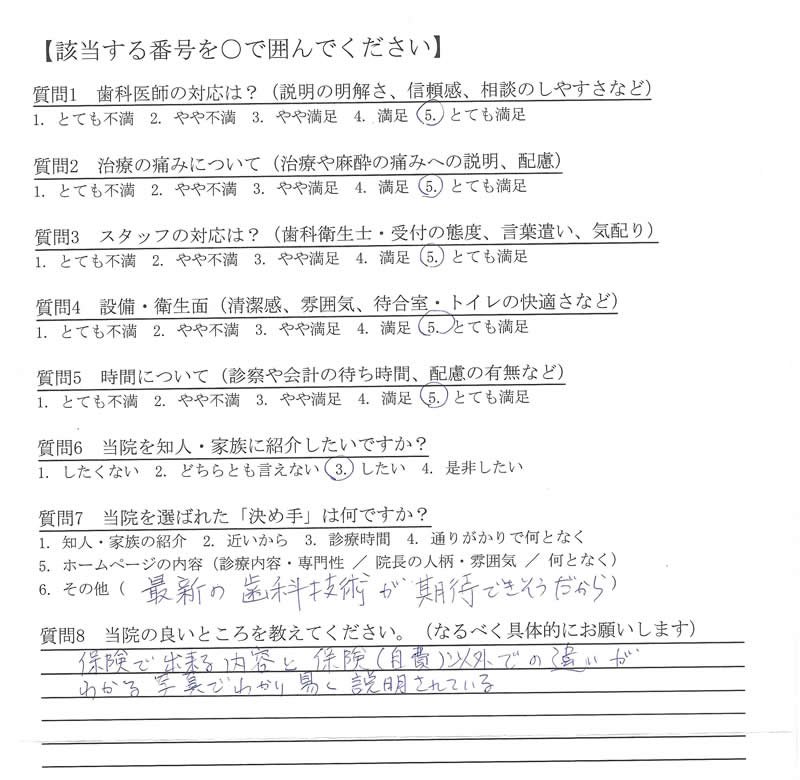 【該当する番号を○で囲んでください】
質問1 歯科医師の対応は？（説明の明解さ、信頼感、相談のしやすさなど）
1. とても不満 2. やや不満 3. やや満足 4. 満足 5. とても満足
質問2 治療の痛みについて（治療や麻酔の痛みへの説明、配慮）
1. とても不満 2. やや不満 3. やや満足 4. 満足 5. とても満足
質問3 スタッフの対応は？（歯科衛生士・受付の態度、言葉遣い、気配り）
1. とても不満 2. やや不満 3. やや満足 4. 満足 5. とても満足
質問4 設備・衛生面（清潔感、雰囲気、待合室・トイレの快適さなど）
1. とても不満 2. やや不満 3. やや満足 4. 満足 5. とても満足
質問5 時間について（診察や会計の待ち時間、配慮の有無など）
1. とても不満 2. やや不満 3. やや満足 4. 満足 5. とても満足
質問6 当院を知人・家族に紹介したいですか？
1. したくない 2. どちらとも言えない 3. したい 4. 是非したい
質問7 当院を選ばれた「決め手」は何ですか？
1. 知人・家族の紹介 2. 近いから 3. 診療時間 4. 通りがかりで何となく
5. ホームページの内容（診療内容・専門性 ／ 院長の人柄・雰囲気 ／ 何となく）
6. その他（ 最新の歯科技術が期待できそうだから）
質問8 当院の良いところを教えてください。（なるべく具体的にお願いします）
保険で出来る内容と保険(自費)以外での違いが
わかる写真でわかり易く説明されている